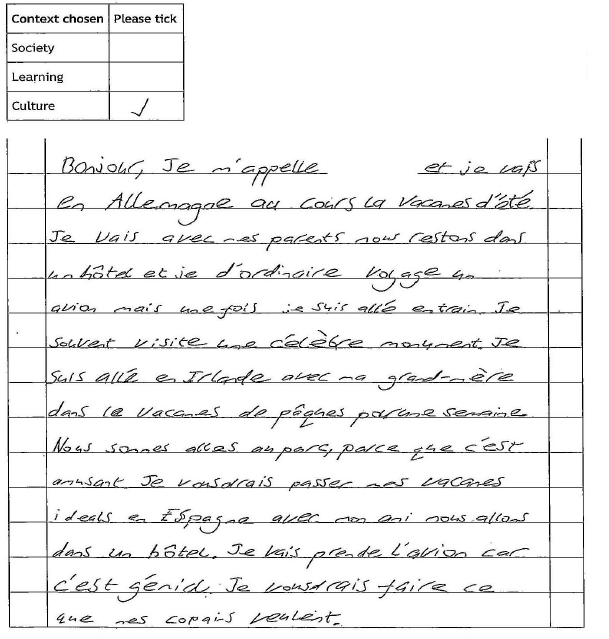 Context chosen Please tick
Society
Learning
Culture ✓
Bonjour, Je m'appelle et je vais
en Allemagne au cours la vacanes d'été.
Je vais avec mes parents nous restons dans
un hôtel et je d'ordinaire voyage un
avion mais une fois je suis allé en train. Je
souvent visite une célèbre monument. Je
suis allé en Irlande avec ma grand-mère
dans le vacanes de pâques pour une semaine.
Nous sommes alles au parc, parce que c'est
amusant. Je vousdrais passer mes vacanes
ideals en Espagne avec mon ami nous allons
dans un hôtel. Je vais prende l'avion car
c'est génial. Je vousdrais faire ce
que mes copains veulent.